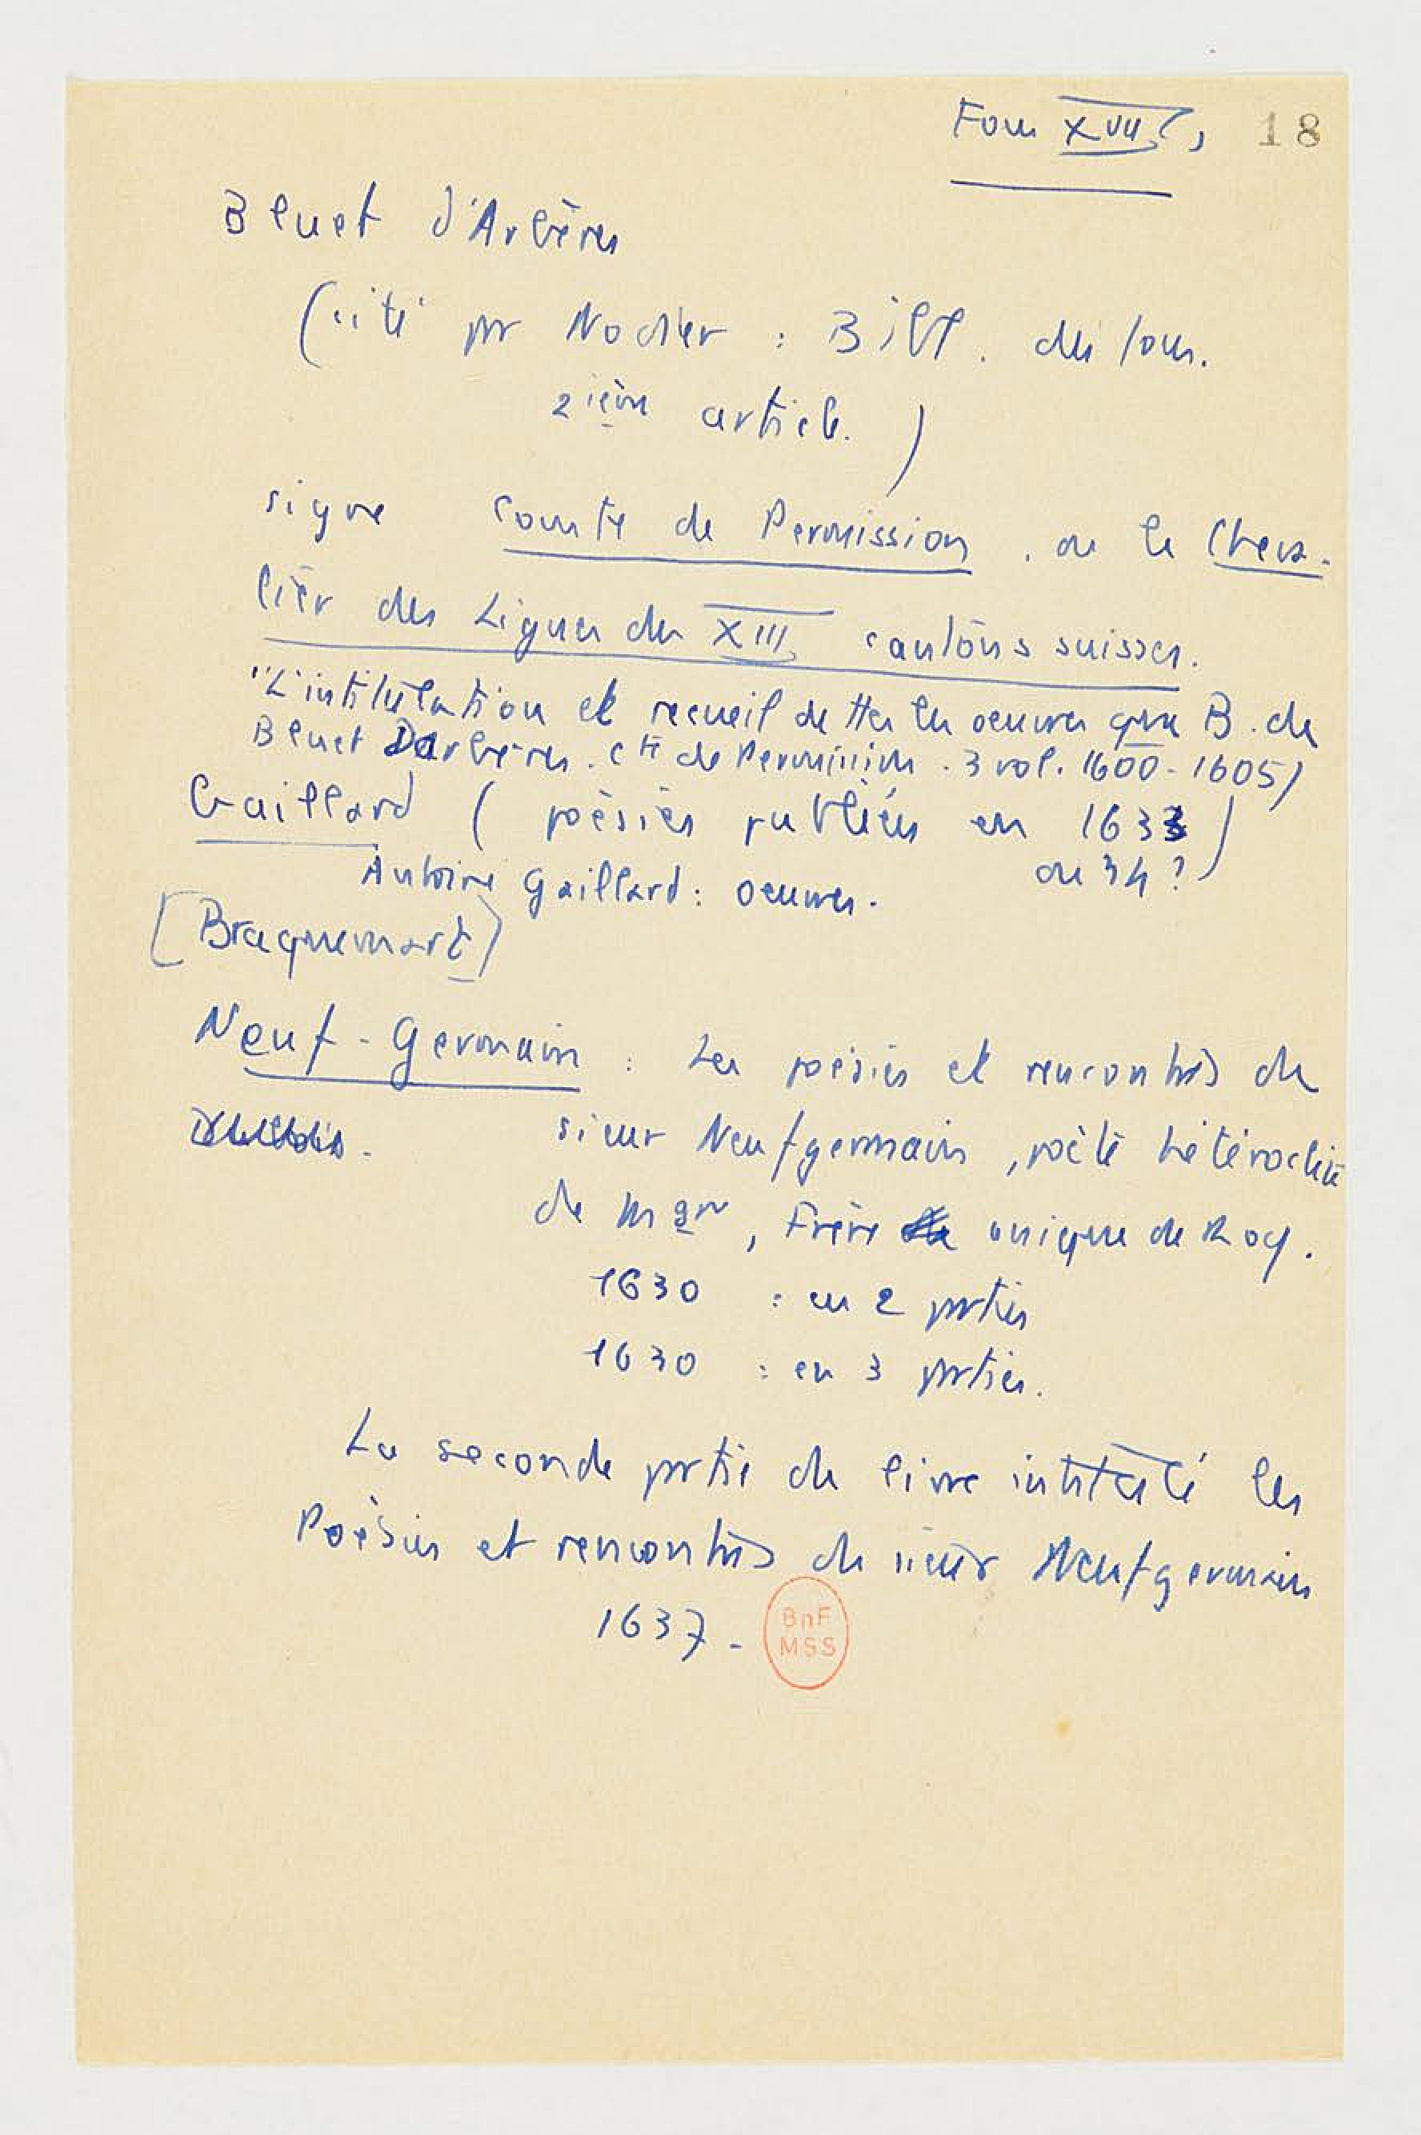 Fous XVII s, 18
Bluet d'Arbères
(cité par Nodier : Bibl. des fous.
2ième article.)
signe Comte de Permission, ou le Cheva-
lier des Ligues des XIII cantons suisses.
"L'intitulation et recueil de ttes les oeuvres que B. de
Bluet Darbères. Cte de Permission. 3 vol. 1600-1605)
Gaillard ( poésies publiées en 1633 )
ou 34 ?
Antoine Gaillard : oeuvres.
[Braquemart]
Neuf-Germain : Les poésies et rencontres du
sieur Neufgermain, poète hétéroclite
de Mgr, Frère unique du Roy.
1630 : en 2 parties
1630 : en 3 parties.
La seconde partie du livre intitulé les
Poésies et rencontres du sieur Neufgermain
1637 -
BnF
MSS